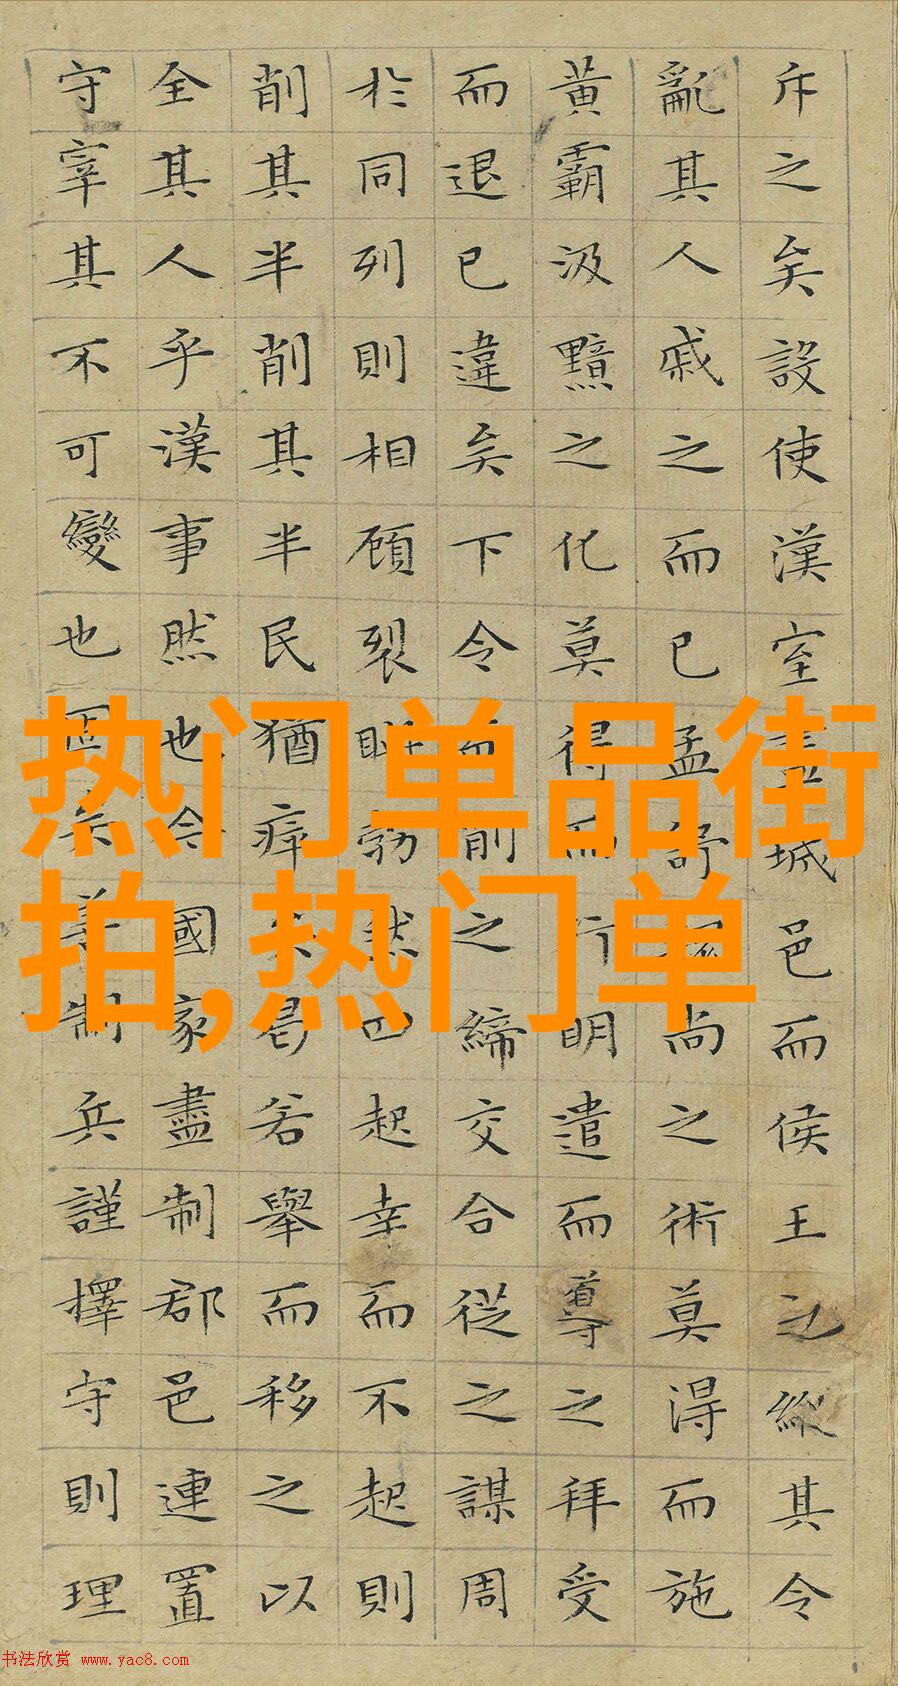 斥之矣設使漢室城邑而侯王之縱其令
亂其人戚之而已孟舒尚之術莫得而施
黃霸汲黯之化莫得而行明遣而導之拜受
而退已違矣下令而削之締交合從之謀周
於同列則相顧裂眦勃然起幸而不起則
削其半削其半民猶瘁矣曷若舉而移之以
全其人乎漢事然也今國家盡制郡邑連置
守宰其不可變也固矣善制兵謹擇守則理
热门单品街
拍,热门单
书法欣赏 www.yac8.com